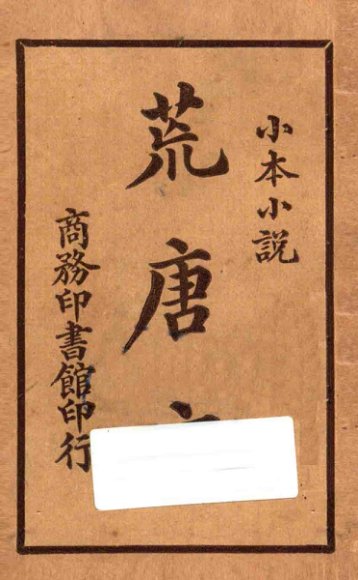 小本小説
荒唐
商務印書館印行